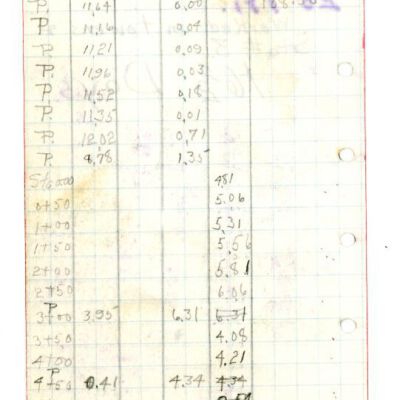 P. 11.64 0.00
P. 11.16 0.04
P. 11.21 0.09
P. 11.96 0.03
P. 11.52 0.18
P. 11.35 0.01
P. 12.02 0.71
P. 8.78 1.35
Sta 0.00 4.81
0+50 5.06
1+00 5.31
1+50 5.56
2+00 5.81
2+50 6.06
P
3+00 3.95 6.31 6.31
3+50 4.08
4+00 4.21
P
4+50 0.41 4.34 4.34